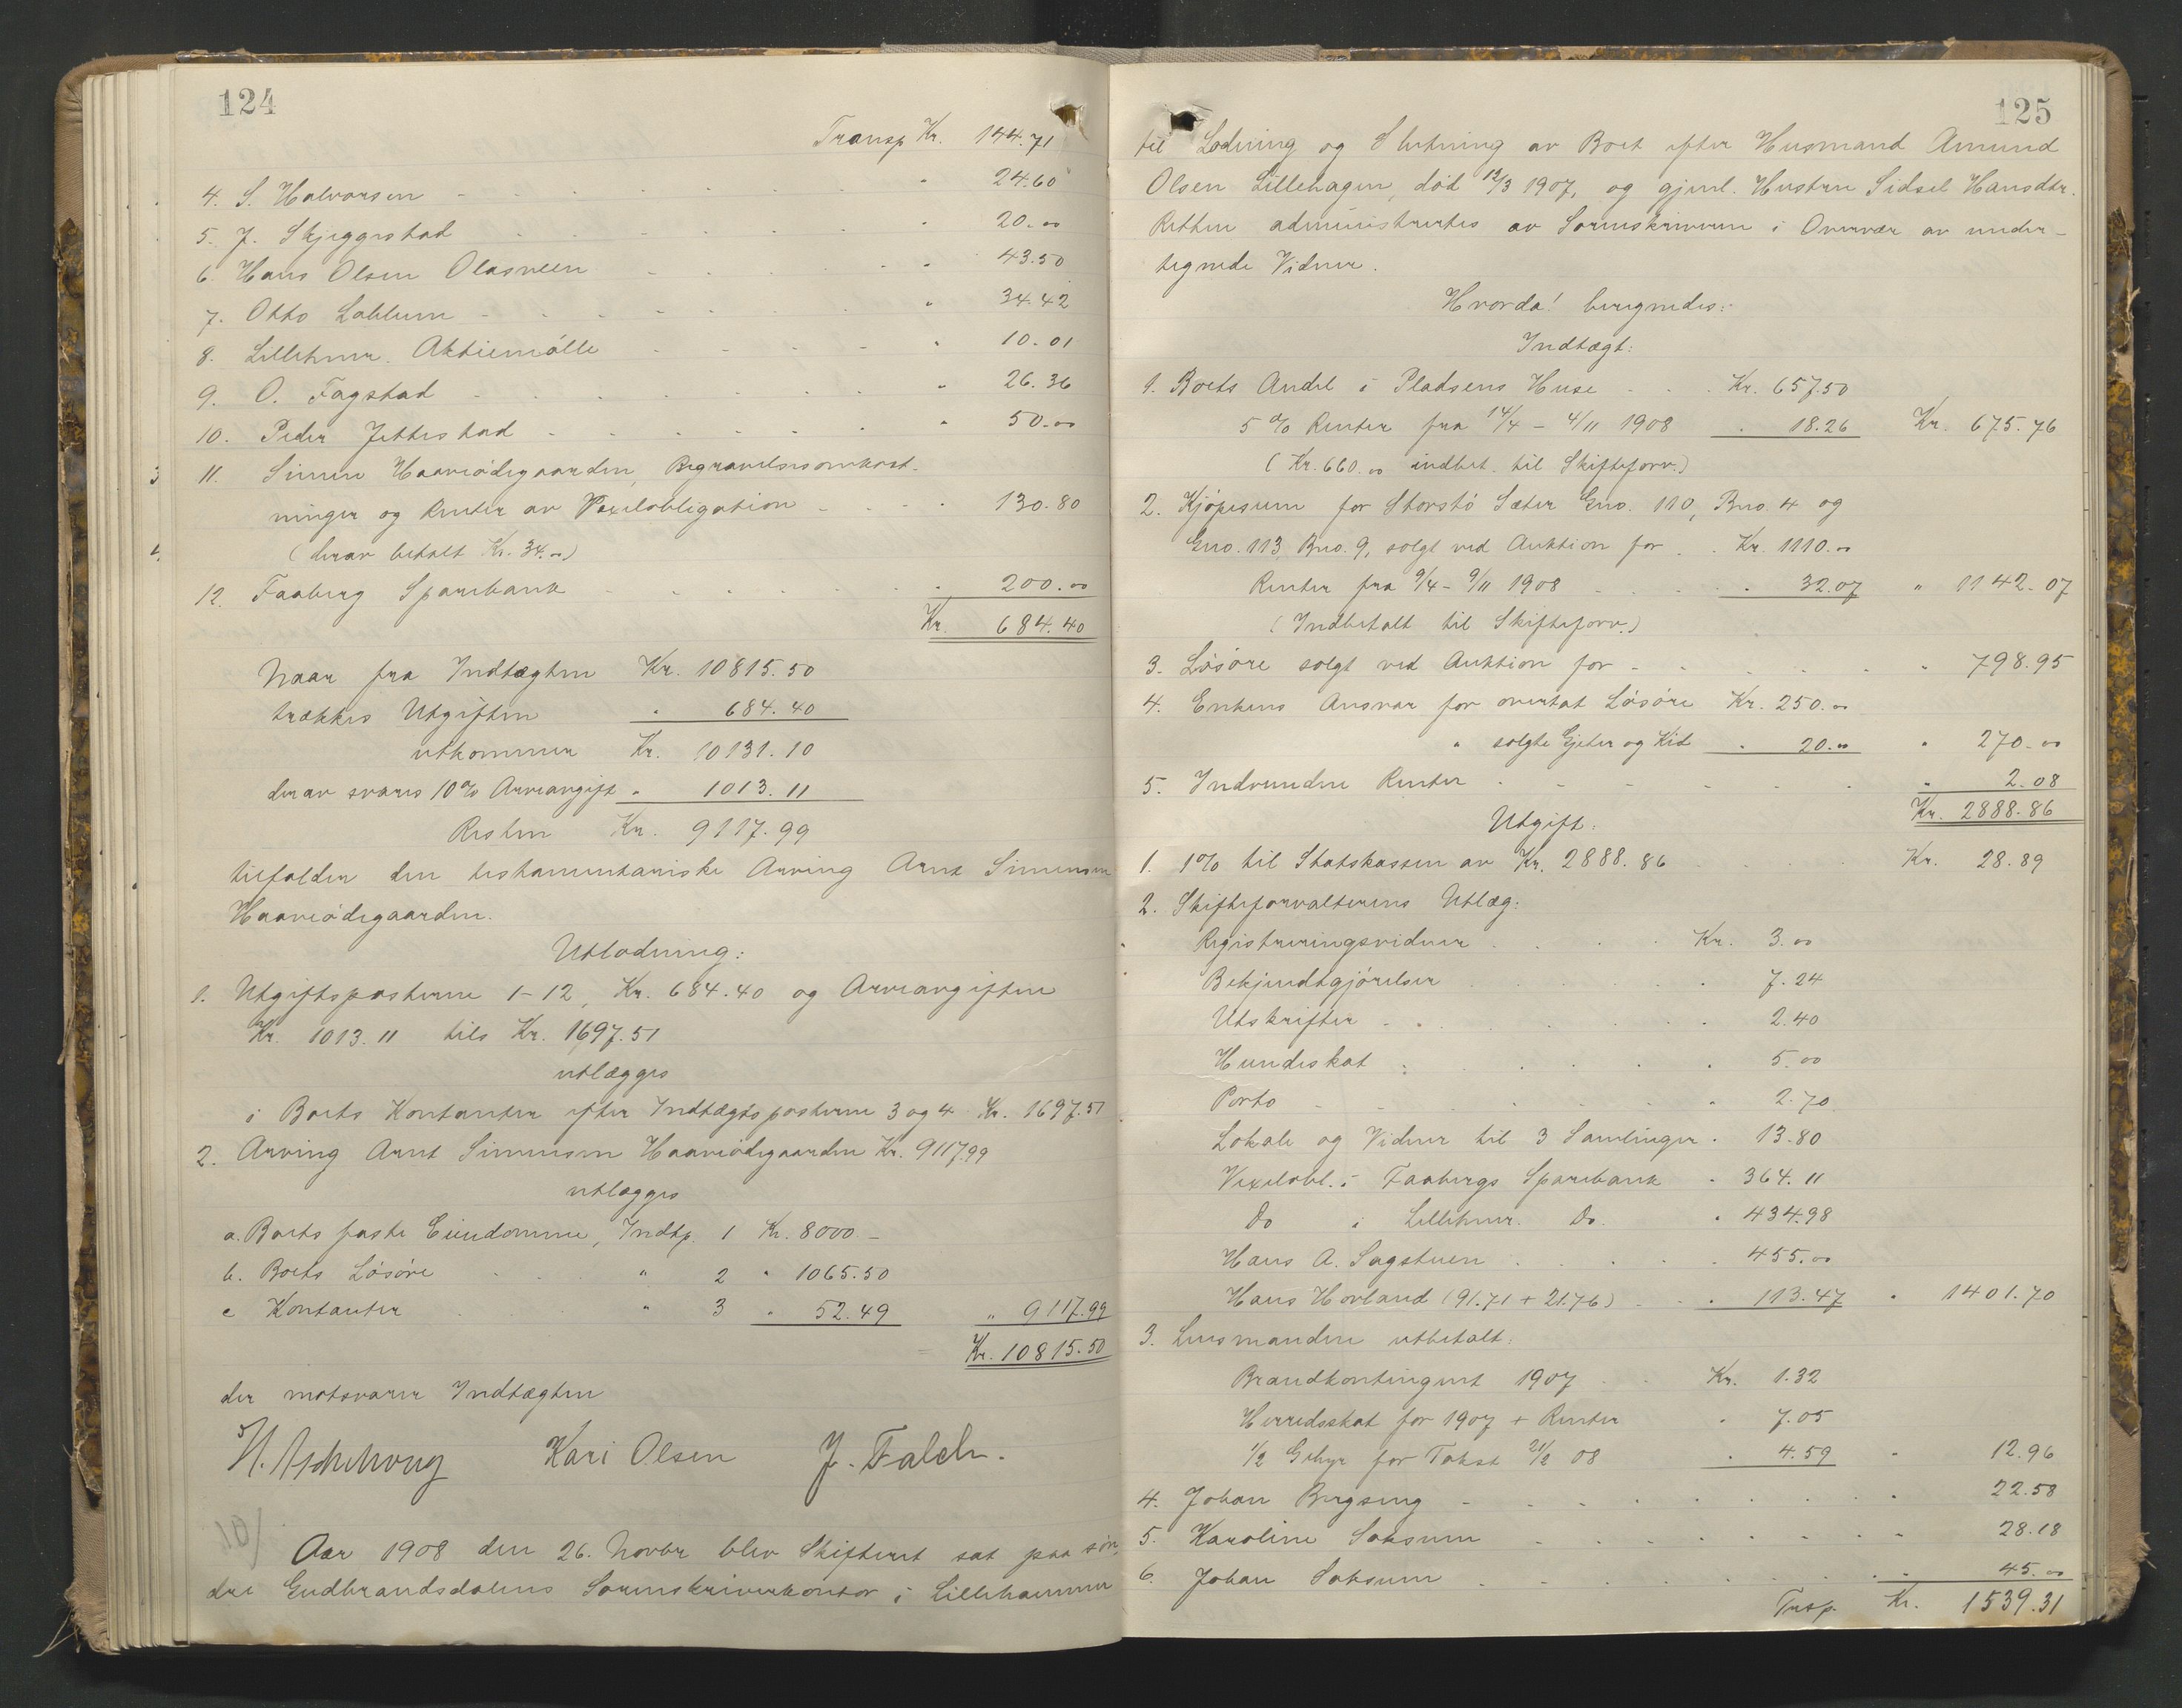 124
Transp Kr. 144.71
4. S. Halvorsen - " 24.60
5. J. Skjeggestad " 20.00
6. Hans Olsen Olasveen " 43.50
7. Otto Løkkum " 34.42
8. Lillehmr. Aktiemølle " 10.01
9. O. Fagstad " 26.36
10. Peder Jettestad " 50.00
11. Simen Haaveødegaarden, Begravelsesomkost-
ninger og Renter av Vexelobligation " 130.80
(herav betalt Kr. 34.00)
12. Faaberg Sparebank " 200.00
Kr. 684.40
Naar fra Indtægten Kr. 10815.50
trækkes Utgiften " 684.40
utkommer Kr. 10131.10
derav svares 10% Arveavgift " 1013.11
Resten Kr. 9117.99
tilfalder den testamentariske Arving Arnt Simensen
Haaveødegaarden.
Utlodning:
1. Utgiftsposterne 1-12, Kr. 684.40 og Arveavgiften
Kr. 1013.11 tils Kr. 1697.51
utlægges
i Boets Kontanter efter Indtægtsposterne 3 og 4 Kr. 1697.51
2. Arving Arnt Simensen Haaveødegaarden Kr. 9117.99
utlægges
a. Boets faste Eiendomme, Indtp. 1 Kr. 8000.-
b. Boets Løsøre " 2 " 1065.50
c Kontanter " 3 " 52.49 " 9117.99
Kr. 10815.50
der motsvarer Indtægten
H. Aschehoug Kari Olsen J. Falch.
10/
Aar 1908 den 26. Novbr blev Skifteret sat paa søn-
dre Gudbrandsdalens Sorenskriverkontor i Lillehammer
125
til Lodning og Slutning av Boet efter Husmand Amund
Olsen Lillehagen, død 12/3 1907, og gjenl. Hustru Sidsel Hansdtr.
Retten administrertes av Sorenskriveren i Overvær av under-
tegnede Vidner.
Hvorda! beregnedes:
Indtægt:
1. Boets Andel i Pladsens Huse Kr. 657.50
5% Renter fra 14/4 - 4/11 1908 " 18.26 Kr. 675.76
(Kr. 660.00 indbet. til Skifteforv.)
2. Kjøpesum for Storstø Sæter Gno. 110, Bno. 4 og
Gno. 113, Bno. 9, solgt ved Auktion for Kr. 1110.00
Renter fra 9/4 - 9/11 1908 " 32.07 " 1142.07
(Indbetalt til Skifteforv.)
3. Løsøre solgt ved Auktion for " 798.95
4. Enkens Ansvar for overtat Løsøre Kr. 250.00
" solgte Gjeter og Kid " 20.00 " 270.00
5. Indvundne Renter " 2.08
Kr. 2888.86
Utgift:
1. 1% til Statskassen av Kr. 2888.86 Kr. 28.89
2. Skifteforvalterens Utlæg:
Registreringsvidner Kr. 3.00
Bekjendtgjørelser " 7.24
Utskrifter " 2.40
Hundeskat " 5.00
Porto " 2.70
Lokale og Vidner til 3 Samlinger " 13.80
Vexelobl. i Faabergs Sparebank " 364.11
Do i Lillehmr. Do. " 434.98
Hans A. Sagstuen " 455.00
Hans Hovland (91.71 + 21.76) " 113.47 " 1401.70
3. Lensmanden utbetalt:
Brandkontingent 1907 Kr. 1.32
Herredsskat for 1907 + Renter " 7.05
1/2 Gebyr for Takst 21/2 08 " 4.59 " 12.96
4. Johan Bergseng " 22.58
5. Karoline Saksum " 28.18
6. Johan Saksum " 45.00
Trsp. Kr. 1539.31